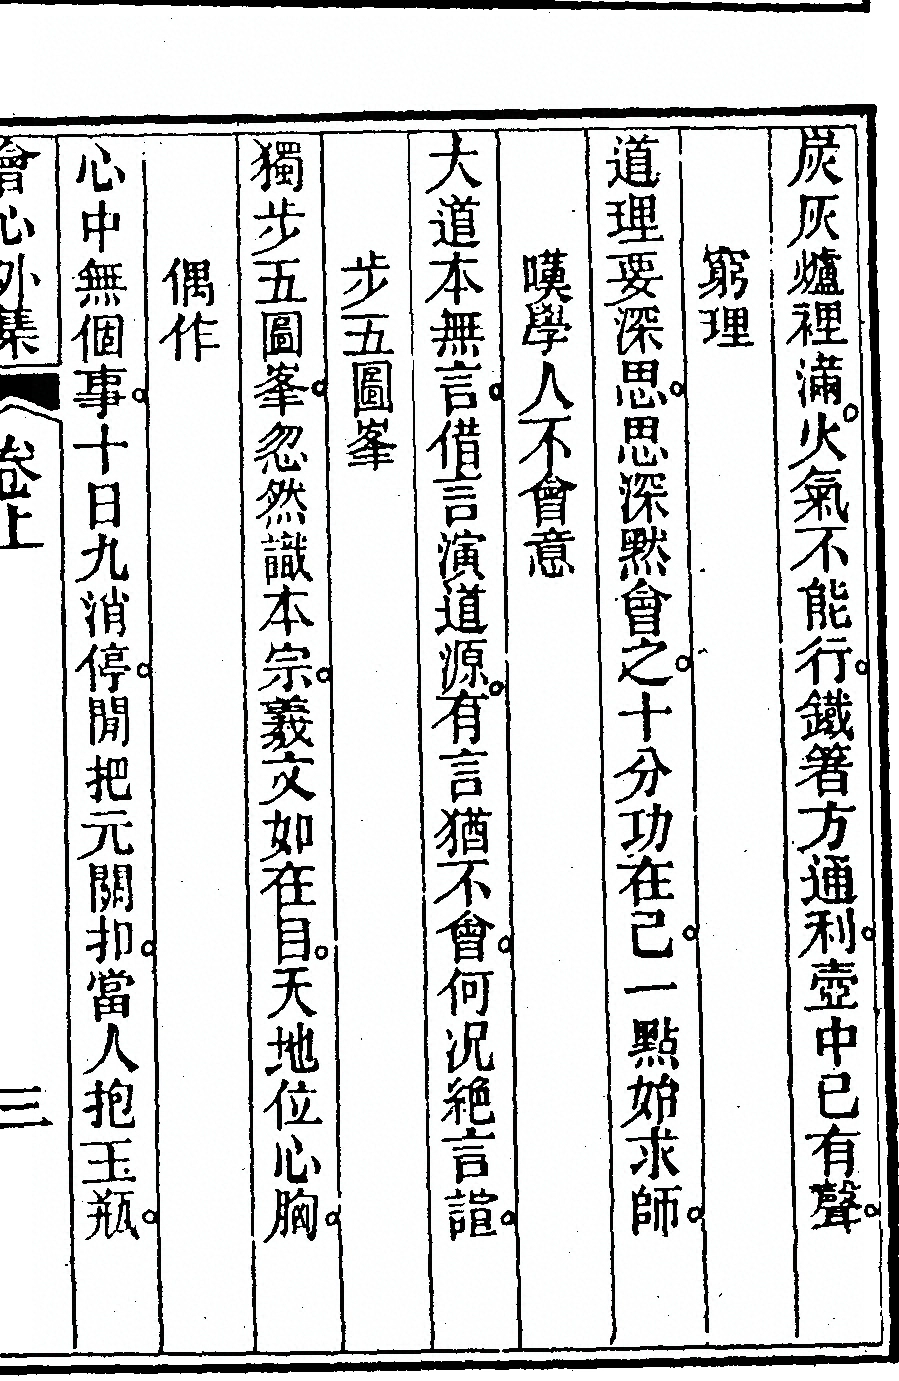 炭灰爐裡滿。火氣不能行。鐵箸方通利。壺中已有聲。
窮理
道理要深思。思深默會之。十分功在己。一點始求師。
嘆學人不會意
大道本無言。借言演道源。有言猶不會。何況絶言諠。
步五圖峯
獨步五圖峯。忽然識本宗。羲文如在目。天地位心胸。
偶作
心中無個事。十日九消停。閒把元關扣。當人抱玉瓶。
會心外集 卷上 三